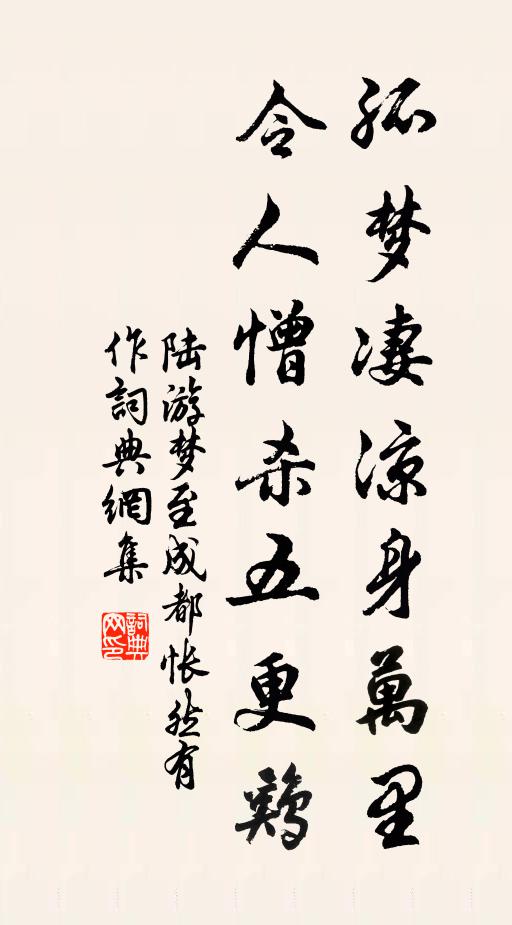 孤梦凄凉身萬里
令人憎杀五更鷄
陆游梦至成都怅然有
作詞典網集
詞典
网印